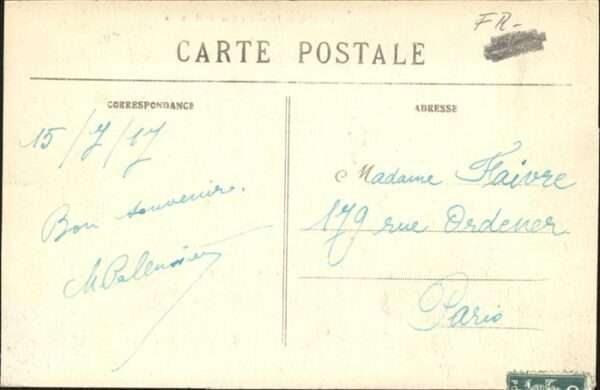 FR-
CARTE POSTALE
CORRESPONDANCE
ADRESSE
15/7/17
Bon souvenir.
Madame Faivre
179 rue Ordener
Paris